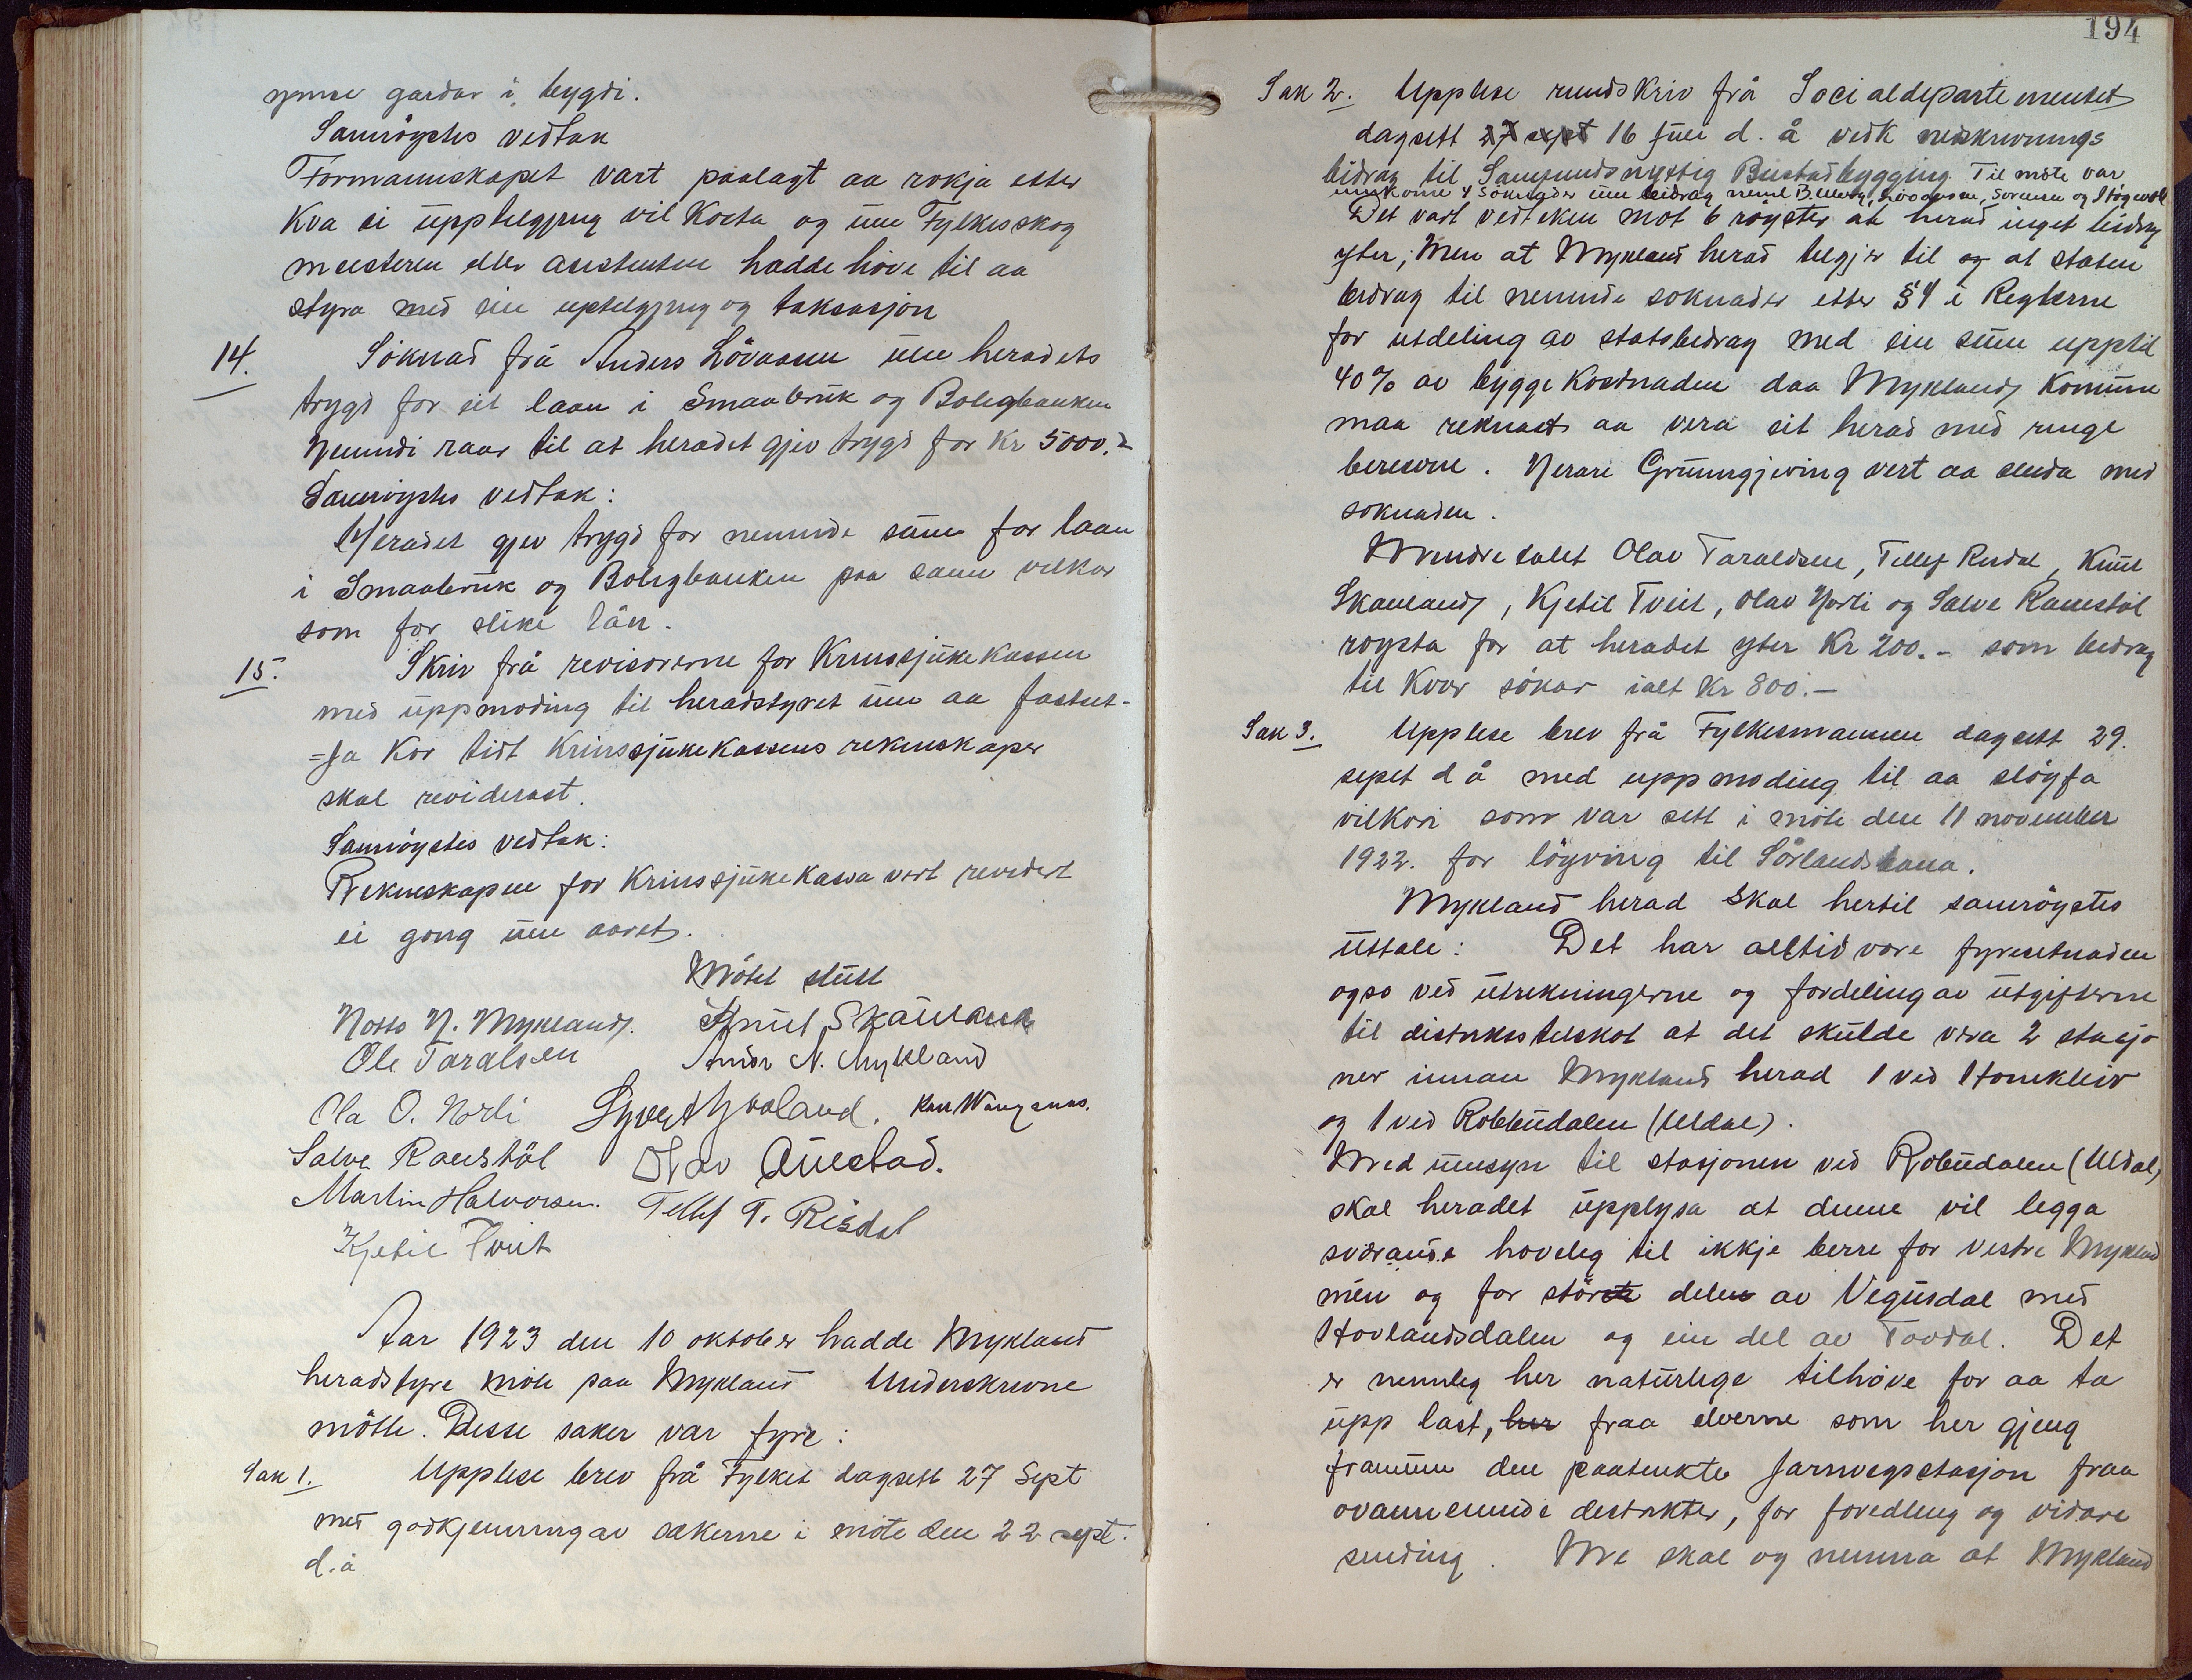 ymse gardar i bygdi.
Samröystes vedtak
Formannskapet vart paalagt aa rökja etter
kva ei upptelgjing vil kosta og um Fylkesskog
meisteren eller assistenten hadde höve til aa
styra med ein upptelgjing og taksasjon
14. Söknad frå Anders Lövaasen um heradets
trygd for eit laan i Smaabruk og Boligbanken
Nemndi raar til at heradet gjev trygd for Kr 5000.-
Samröystes vedtak:
Heradet gjev trygd for nemnde sum for laan
i Smaabruk og Boligbanken paa same vilkor
som for slike lån.
15. Skriv frå revisorerne for Krinssjukekassen
med uppmoding til heradstyret um aa fastset-
=ja kor tidt Krinssjukekassens rekneskaper
skal reviderast.
Samröystes vedtak:
Rekneskapen for Krinssjukekassa vert revidert
ei gong um aaret.
Mötet slutt
Notto N. Mykland. Knut Skailand
Ole Taralsen Ánders N. Mykland
Ola O. Norli Syvert Hovland.
Salve Ramstöl Olav Aurebad.
Martin Halvorsen. Tellef T. Risdal
Kjetil Tveit
Aar 1923 den 10 oktober hadde Mykland
heradstyre möte paa Mykland Underskrevne
mötte. Desse saker var fyre:
Sak 1. Upplese brev frå Fylket dagsett 27 Sept
med godkjenning av sakerne i möte den 22 sept.
d.å
194
Sak 2. Upplese rundskriv frå Socialdepartementet
dagsett 27 sept 16 juli d. å vedk nedskrivnings
bidrag til Samfundsnyttig Bustadbygging. Til möte var
innkome 4 söknader um bidrag neml Lövaasen, Sorensen og
Det vart vedteken mot 6 röyster at herad inget bidrag
yter; Men at Mykland herad telgjer til og at staten
bidrag til nemnde soknader etter § 4 i Reglerne
for utdeling av statsbidrag med ein sum upptil
40% av byggekostnaden daa Myklands Komune
maa reknast aa vera eit herad med ringe
bereevne. Nerare Grunngjeving vert aa senda med
soknaden.
Mindretalet Olav Taraldsen, Tellef Risdal, Knut
Skailand, Kjetil Tveit, Olav Norli og Salve Ramstöl
röysta for at heradet yter Kr 200.- som bidrag
til kvar sökar ialt Kr 800.-
Sak 3. Upplese brev frå Fylkesmannen dagsett 29.
sept d å med uppmoding til aa slöyfa
vilkori som var sett i möte den 11 november
1922. for löyving til Sörlandsbana.
Mykland herad skal hertil samröystes
uttale: Det har alltid vore fyresetnaden
ogso ved utrekningerne og fordeling av utgifterne
til distriksstelskot at det skulde vera 2 stasjo
ner innan Mykland herad 1 ved Honekleiv
og 1 ved Robbudalen (Uldal).
Med umsyn til stasjonen ved Robudalen (Uldal)
skal heradet upplysa at denne vil legga
sværande höveleg til ikkje berre for vestre Mykland
men og for störste delen av Vegusdal med
Hovlandsdalen og ein del av Tovdal. Det
er nemnleg her naturlege tilhöve for aa ta
upp last, her fraa elverne som her gjeng
framum den paatenkte Jarnvegsstasjon fraa
ovannemnde destrikter, for foredling og vidare
sending. Me skal og nemna at Mykland